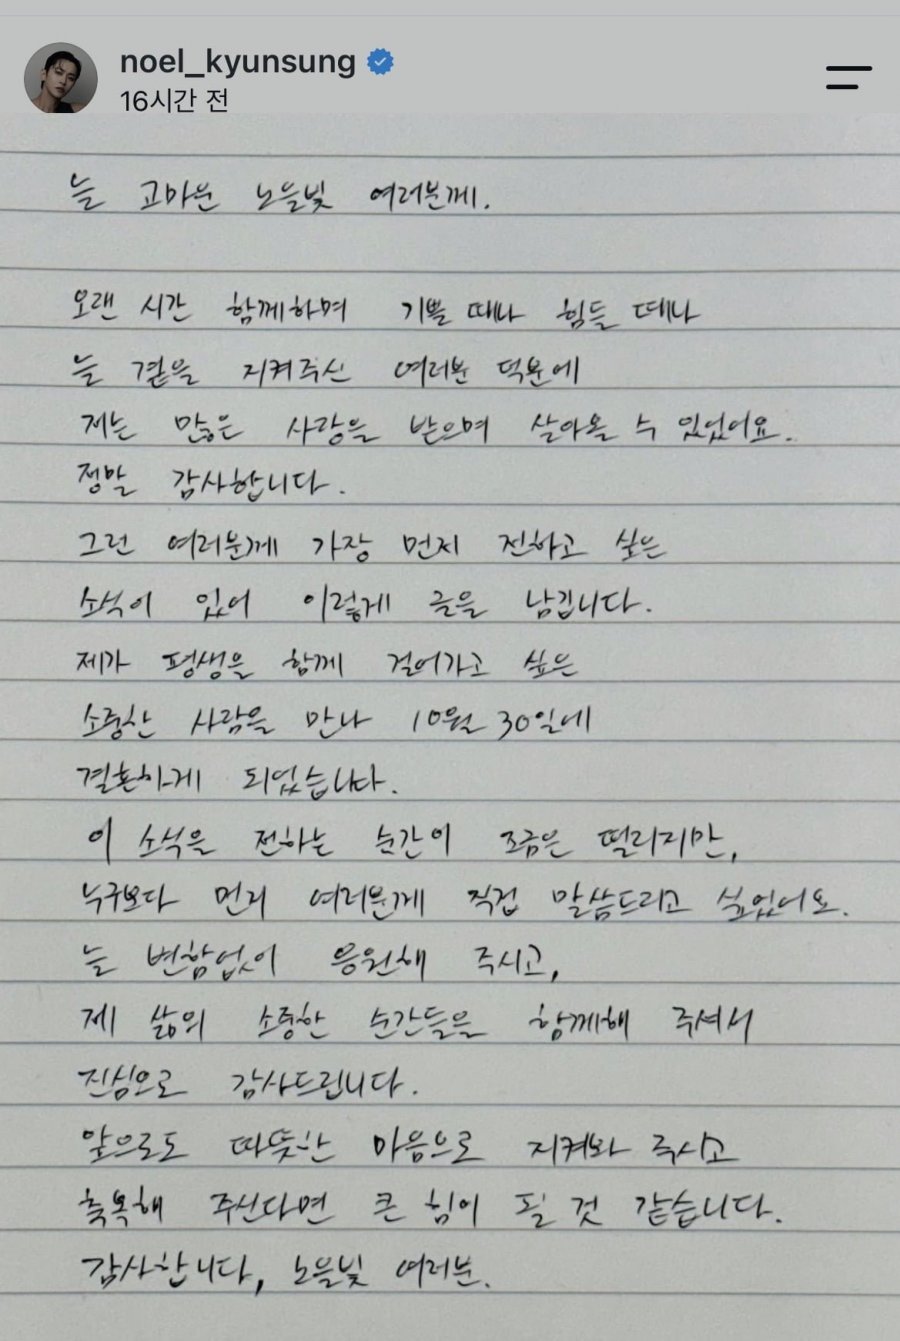 noel_kyunsung
16시간 전
늘 고마운 노을빛 여러분께.
오랜 시간 함께하며 기쁠 때나 힘들 때나
늘 곁을 지켜주신 여러분 덕분에
저는 많은 사랑을 받으며 살아올 수 있었어요.
정말 감사합니다.
그런 여러분께 가장 먼저 전하고 싶은
소식이 있어 이렇게 글을 남깁니다.
제가 평생을 함께 걸어가고 싶은
소중한 사람을 만나 10월 30일에
결혼하게 되었습니다.
이 소식을 전하는 순간이 조금은 떨리지만,
누구보다 먼저 여러분께 직접 말씀드리고 싶었어요.
늘 변함없이 응원해 주시고,
제 삶의 소중한 순간들을 함께해 주셔서
진심으로 감사드립니다.
앞으로도 따뜻한 마음으로 지켜봐 주시고
축복해 주신다면 큰 힘이 될 것 같습니다.
감사합니다, 노을빛 여러분.